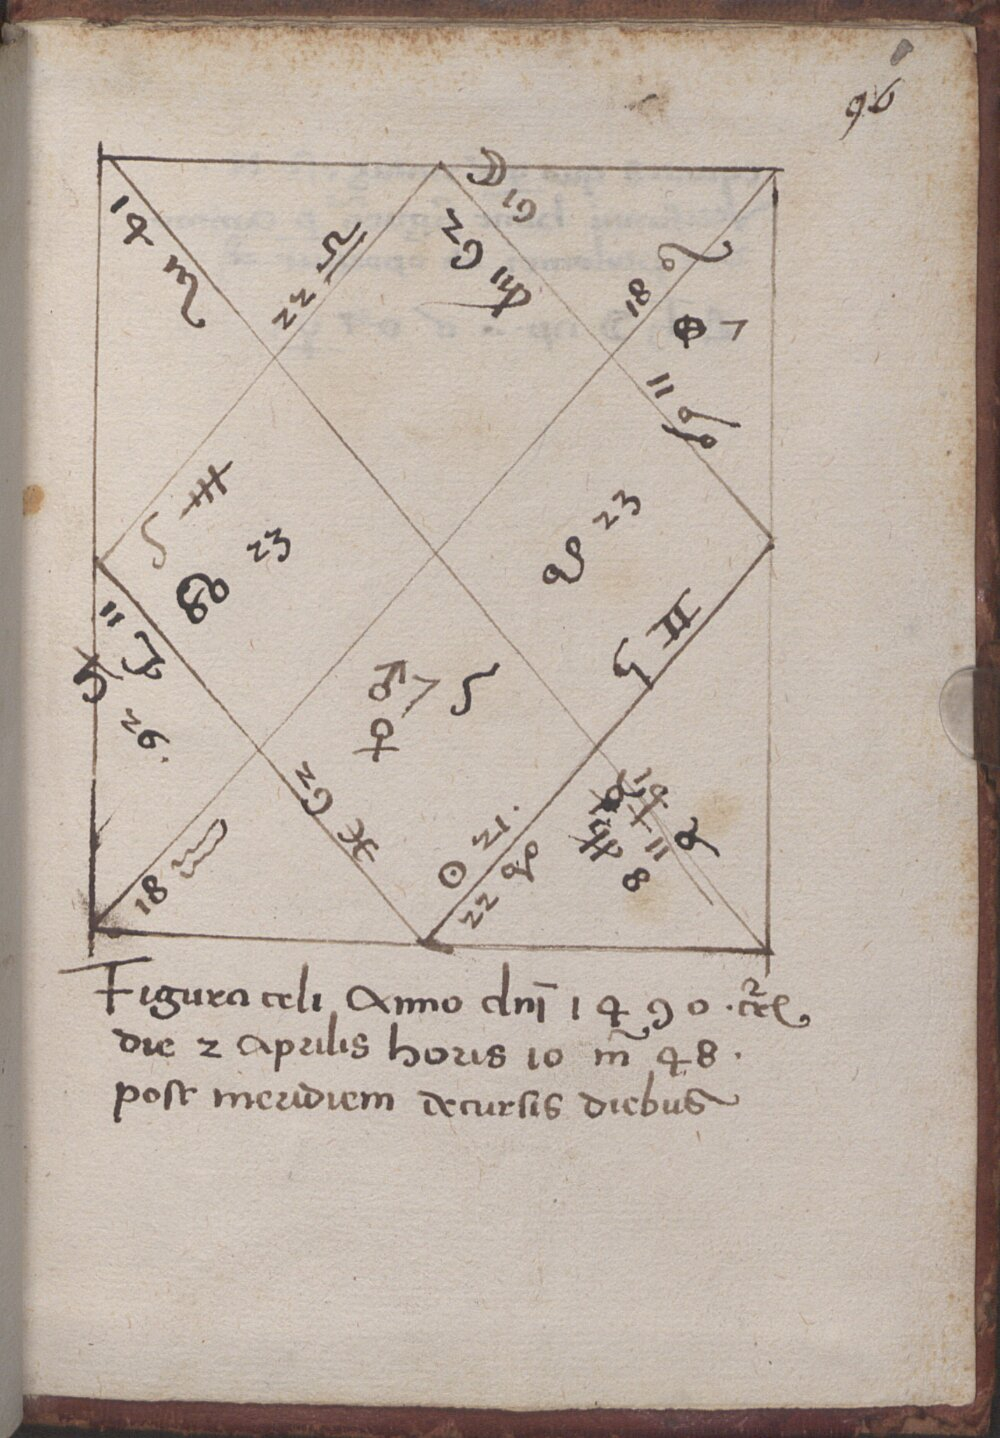 96
14 ♏
22 ♎
☽ 19
25 ♍
18 ♌
⊕ 7
11 ♋
5 ♐
☊ 23
☋ 23
5 ♊
11 ♑
♄ 26.
♂ 7 5
♀
18 ♒
25 ♓
☉ 21.
22 ♈
11 ♉
8
Figura celi Anno dnī 1490
die 2 Aprilis horis 10 m̃ 48.
post meridiem decursis diebus